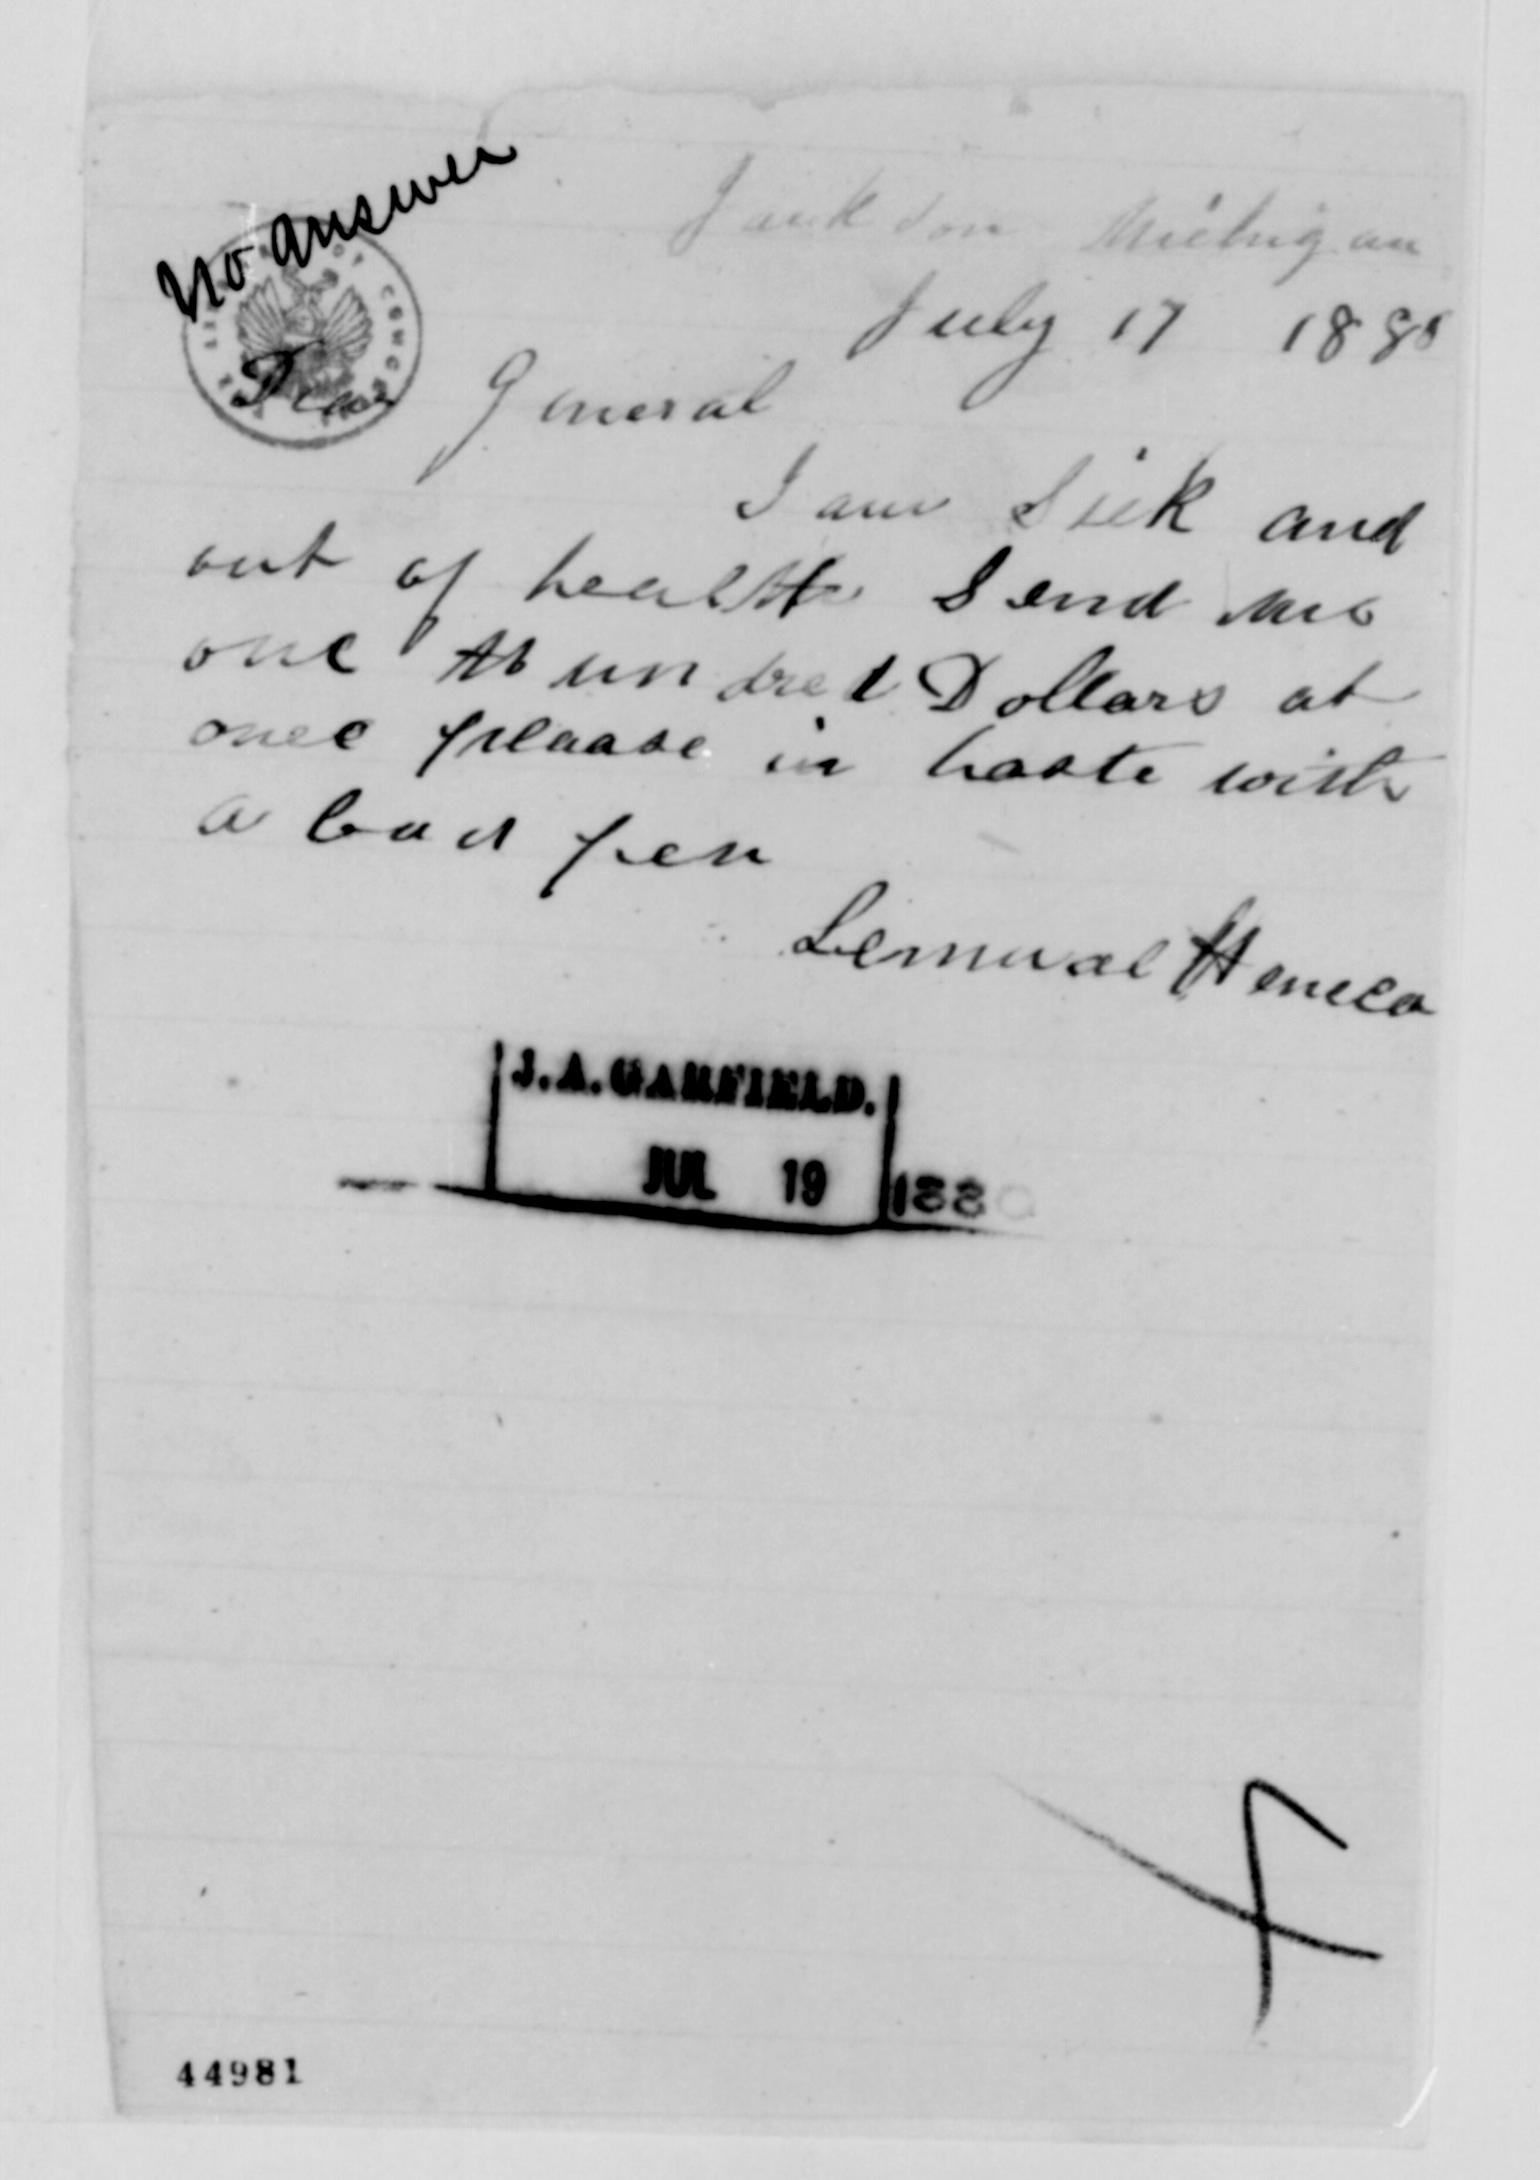 No answer
Jackson Michigan
July 17 1880
Dear General
I am Sick and
out of health Send me
one Hundred Dollars at
once pleaase in haste with
a bad pen
Lemual
J. A. GARFIELD.
JUL 19 1880
44981